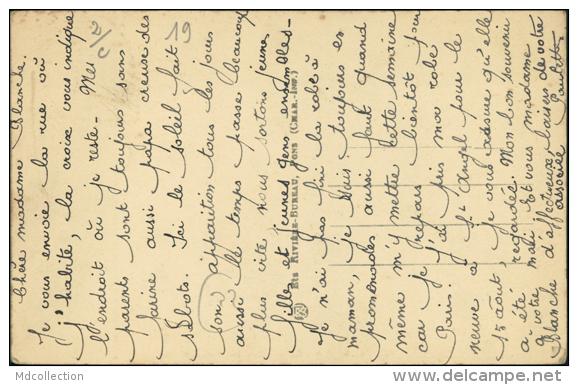 Chère madame Blanche.
Je vous envoie la rue où
j'habite, la croix vous indique
l'endroit où je reste. Mes
parents sont toujours sans
faire aussi papa creuse des
sabots. Ici le soleil fait
son apparition tous les jours
aussi le temps passe beaucoup
plus vite nous sortons jeunes
filles et jeunes gens ensembles
je n'ai pas fini la robe à
maman, je suis toujours en
promenades aussi faut quand
même m'y mettre cette semaine
car je repars bientôt pour
Paris je j'ai mis ma robe
neuve à St Angel pour le
15 août, je vous assure qu'elle
a été regardée. Mon bon souvenir
à votre mari. Et vous madame
Blanche d'affectueux baisers de votre
associée Paulette
2/c
19
Ets Rivière-Bureau, Pons (Char.-Inf.)
Mdcollection
www.delcampe.net